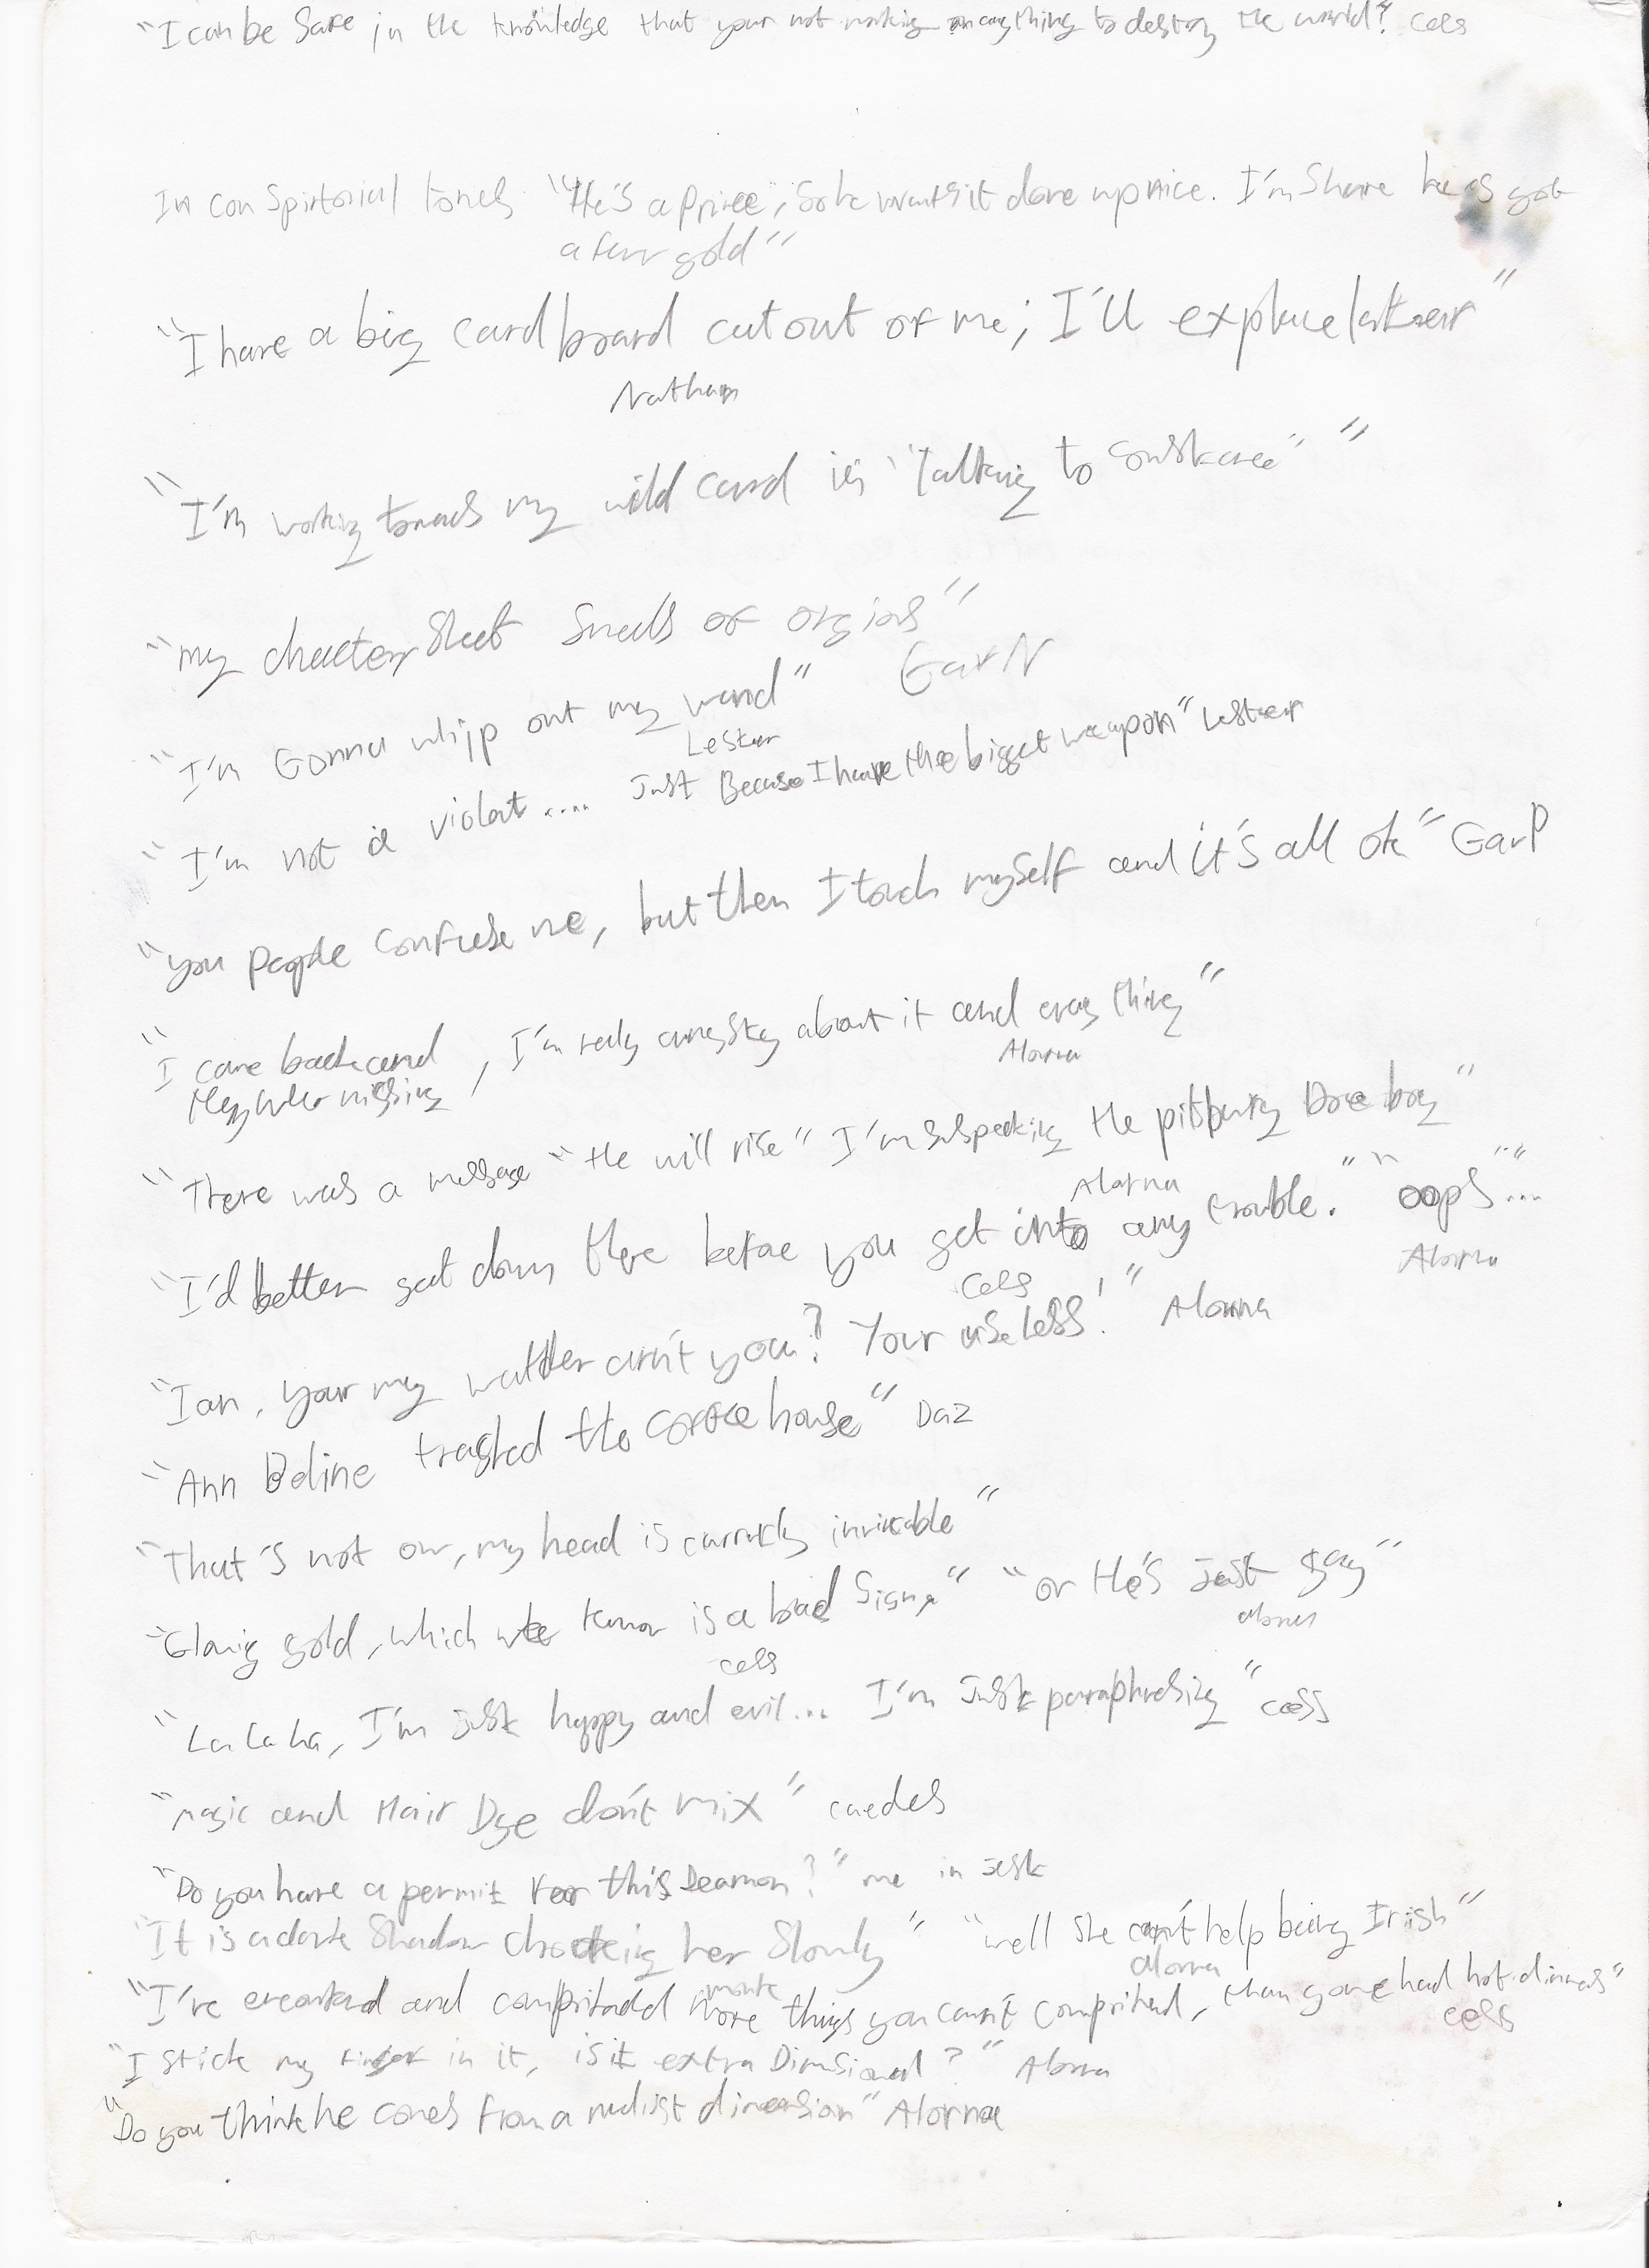 "I can be safe in the knowledge that your not making anything to destroy the world? Cels
In conspirtorial tones "He's a Prince, so he wants it done up nice. I'm share he's got
a few gold"
"I have a big cardboard cut out of me; I'll explaine latter"
Nathan
"I'm working towards my wild card in "Talking to" "
"my charter sheet smells of orgins"
Gav N
"I'm Gonna whip out my wand"
Lester
"I'm not a violat.... Just Because I have the biggest weapon" Lester
"you people confuse me, but then I touch myself and it's all ok" GavP
"I came back and
they were missing, I'm realy about it and every thing"
Alorna
"There was a message "He will rise" I'm suspecting the pilsbury Doe boy"
Alorna
"I'd better get down there before you get into any trouble." "oops"...
Cels Alorna
"Ian, your my wattler arn't you? Your useless!" Alorna
"Ann Boline trashed the coffee house" Daz
"That's not ow, my head is currntly"
"Glowig gold, which we know is a bad sign" "or He's just gay"
cels alorna
"La La La, I'm just happy and evil... I'm just paraphrasing" cels
"Magic and Hair Dye don't mix" caedes
"Do you have a permit for this Deamon?" me in jest
"It is a dark shadow chocking her slowly" "well she can't help being Irish"
alorna
"I've and more things you can't comprihend, than youve had hot dinners"
cels
"I stick my finger in it, is it extra Dimsional?" Alorna
"Do you think he comes from a nudist dimension" Alorna